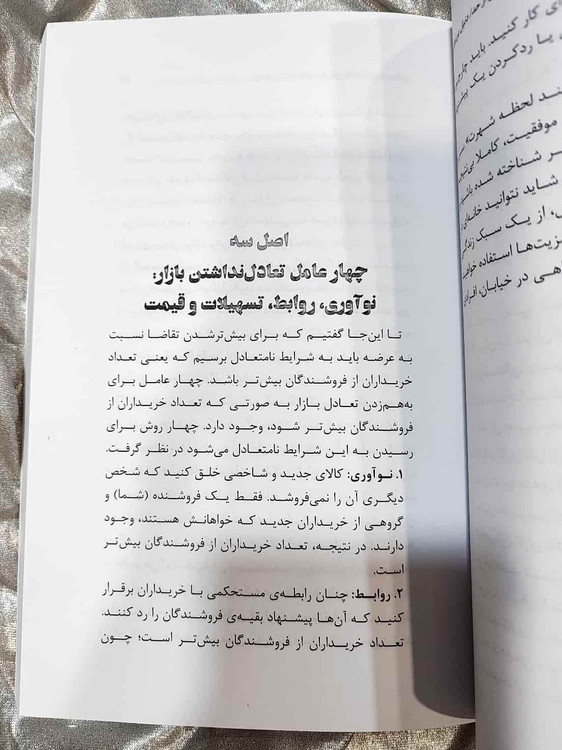 اصل سه
چهار عامل تعادل‌نداشتن بازار:
نوآوری، روابط، تسهیلات و قیمت
تا این‌جا گفتیم که برای بیش‌ترشدن تقاضا نسبت
به عرضه باید به شرایط نامتعادل برسیم که یعنی تعداد
خریداران از فروشندگان بیش‌تر باشد. چهار عامل برای
به‌هم‌زدن تعادل بازار به صورتی که تعداد خریداران از
فروشندگان بیش‌تر شود، وجود دارد. چهار روش برای
رسیدن به این شرایط نامتعادل می‌شود در نظر گرفت.
۱. نوآوری: کالای جدید و شاخصی خلق کنید که شخص
دیگری آن را نمی‌فروشد. فقط یک فروشنده (شما) و
گروهی از خریداران جدید که خواهانش هستند، وجود
دارند. در نتیجه، تعداد خریداران از فروشندگان بیش‌تر
است.
۲. روابط: چنان رابطه‌ی مستحکمی با خریداران برقرار
کنید که آن‌ها پیشنهاد بقیه‌ی فروشندگان را رد کنند.
تعداد خریداران از فروشندگان بیش‌تر است؛ چون
ای کار کنید. باید
یا ردکردن یک
ند لحظه شهرت»
موفقیت، کاملا
ر شناخته شده
شاید نتوانید خانه‌ای
، از یک سبک زندگی
زیت‌ها استفاده
اهی در خیابان، افراد